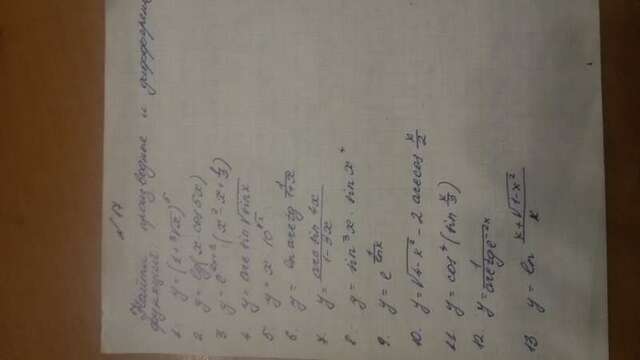 № 17
Найти производные и дифферен
функций
1. y = (1+∛x)⁵
2. y = lg(x · cos5x)
3. y = e (x² - x + 1/3)
4. y = arcsin√sinx
5. y = x · 10^√x
6. y = ln arctg 1/(1+x)
7. y = arcsin 4x / (1-3x)
8. y = sin³x · sin x⁴
9. y = e^(1/lnx)
10. y = √(4-x²) - 2 arccos x/2
11. y = cos⁴(sin x/3)
12. y = 1/(arctg e^(-2x))
13. y = ln (x+√(1-x²))/x